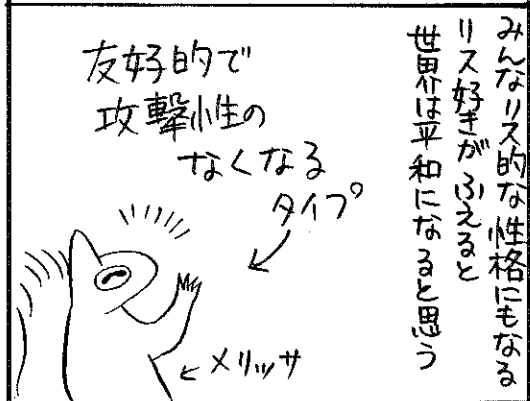 みんなリス的な性格にもなる
リス好きがふえると
世界は平和になると思う
友好的で
攻撃性の
なくなる
タイプ
←メリッサ